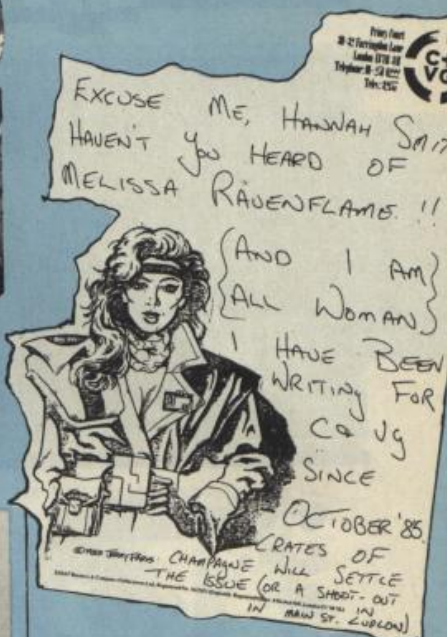 Priory Court
30-32 Farringdon Lane
C+
VG
EXCUSE ME, HANNAH SMIT
HAVEN'T YOU HEARD OF
MELISSA RAVENFLAME !!
(AND I AM)
(ALL WOMAN)
I HAVE BEEN
WRITING FOR
C&VG
SINCE
OCTOBER '85.
CRATES OF
CHAMPAGNE WILL SETTLE
THE ISSUE (OR A SHOOT-OUT
IN MAIN ST. LUDLOW)